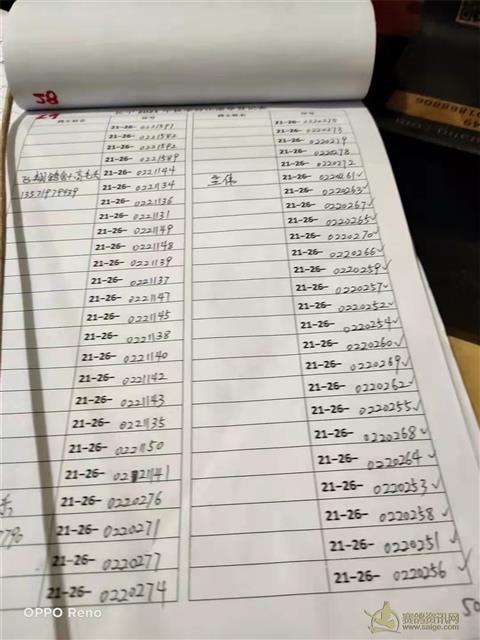 28
29
21-26-0221591
21-26-0221582
21-26-0221592
21-26-0221589
21-26-0221144
13571979439
21-26-0221134
21-26-0221136
21-26-0221131
21-26-0221149
21-26-0221148
21-26-0221139
21-26-0221137
21-26-0221147
21-26-0221145
21-26-0221138
21-26-0221140
21-26-0221142
21-26-0221143
21-26-0221135
21-26-0221150
21-26-0221141
21-26-0220276
21-26-0220271
21-26-0220277
21-26-0220274
21-26-0220275
21-26-0220273
21-26-0220279
21-26-0220278
21-26-0220272
王伟 21-26-0220261✓
21-26-0220263✓
21-26-0220267✓
21-26-0220265✓
21-26-0220270✓
21-26-0220266✓
21-26-0220259✓
21-26-0220257✓
21-26-0220252✓
21-26-0220254✓
21-26-0220260✓
21-26-0220269✓
21-26-0220262✓
21-26-0220255✓
21-26-0220268✓
21-26-0220264✓
21-26-0220253✓
21-26-0220258✓
21-26-0220251✓
21-26-0220256✓
50
OPPO Reno
赛鸽资讯网
www.saige.com